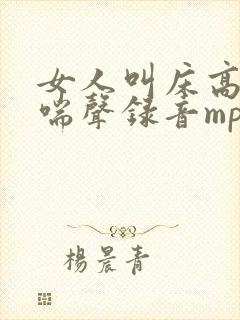 女人叫床高
喘聲錄音mp
楊晨青